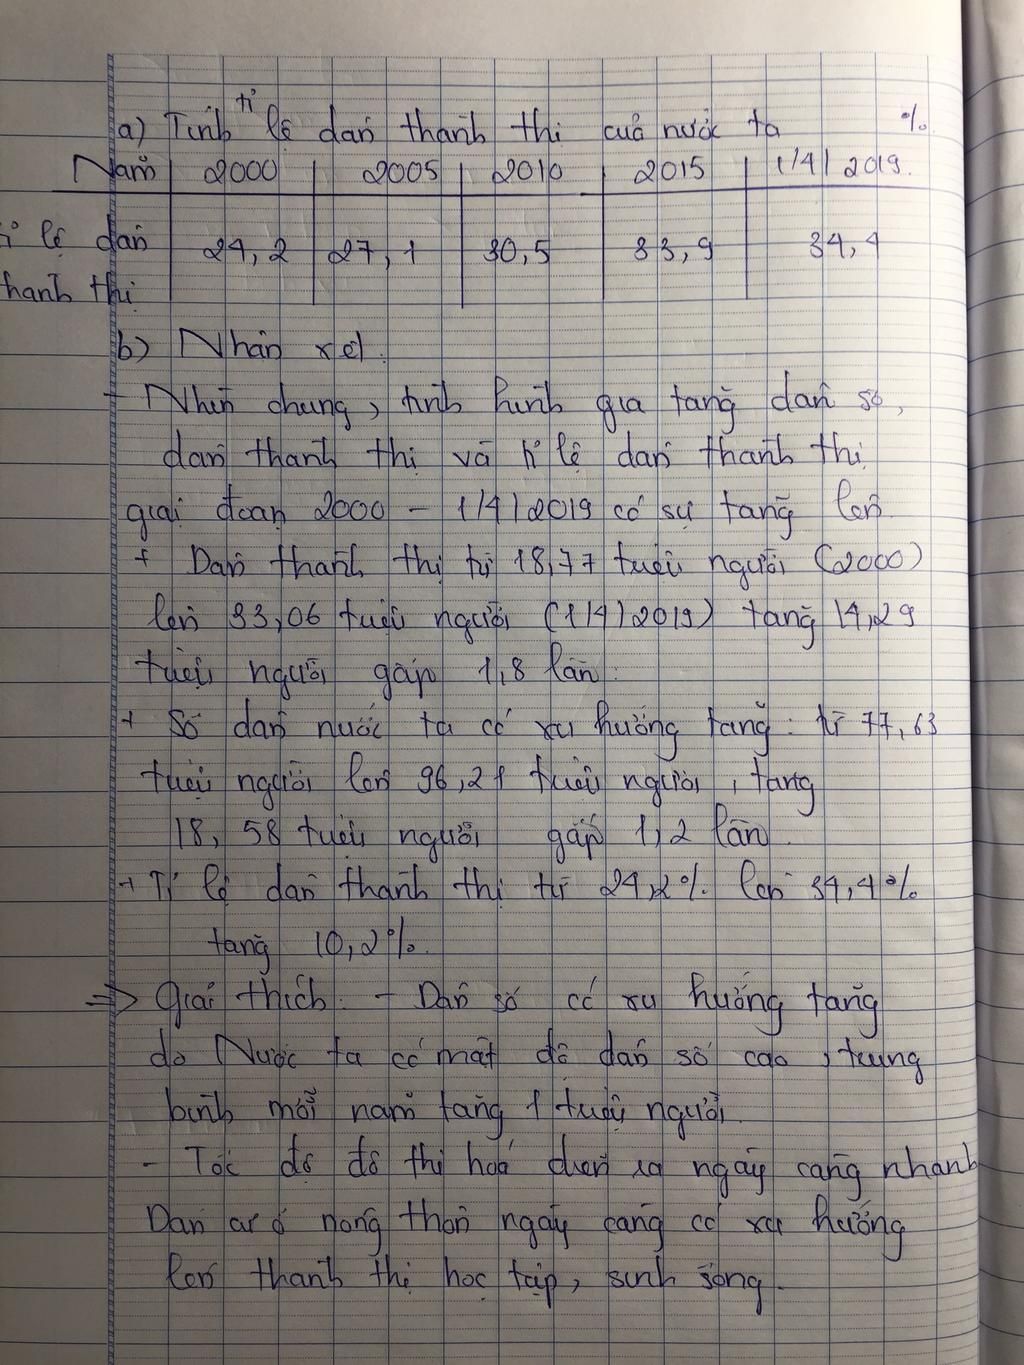 a) Tính tỉ lệ dân thành thị của nước ta %
Năm 2000 2005 2010 2015 1/4/2019.
tỉ lệ dân 24,2 27,1 30,5 33,9 34,4
thành thị
b) Nhận xét.
- Nhìn chung, tình hình gia tăng dân số,
dân thành thị và tỉ lệ dân thành thị
giai đoạn 2000 - 1/4/2019 có sự tăng lên.
+ Dân thành thị từ 18,77 triệu người (2000)
lên 33,06 triệu người (1/4/2019) tăng 14,29
triệu người gấp 1,8 lần.
+ Số dân nước ta có xu hướng tăng: từ 77,63
triệu người lên 96,21 triệu người, tăng
18,58 triệu người gấp 1,2 lần.
+ Tỉ lệ dân thành thị từ 24,2% lên 34,4%
tăng 10,2%.
=> Giải thích: - Dân số có xu hướng tăng
do Nước ta có mật độ dân số cao, trung
bình mỗi năm tăng 1 triệu người.
- Tốc độ đô thị hoá diễn ra ngày càng nhanh
Dân cư ở nông thôn ngày càng có xu hướng
lên thành thị học tập, sinh sống.